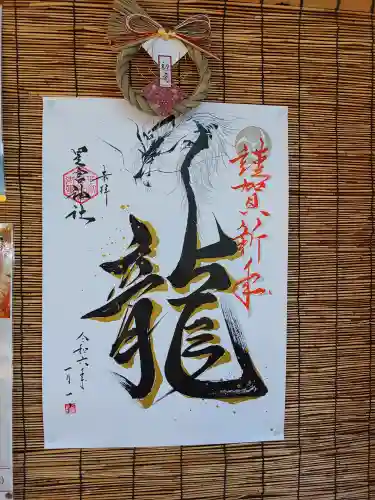 謹賀新年
龍
奉拝
星宮神社
令和六年
一月一